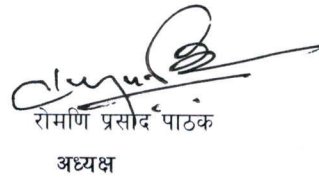 रोमणि प्रसाद पाठक
अध्यक्ष